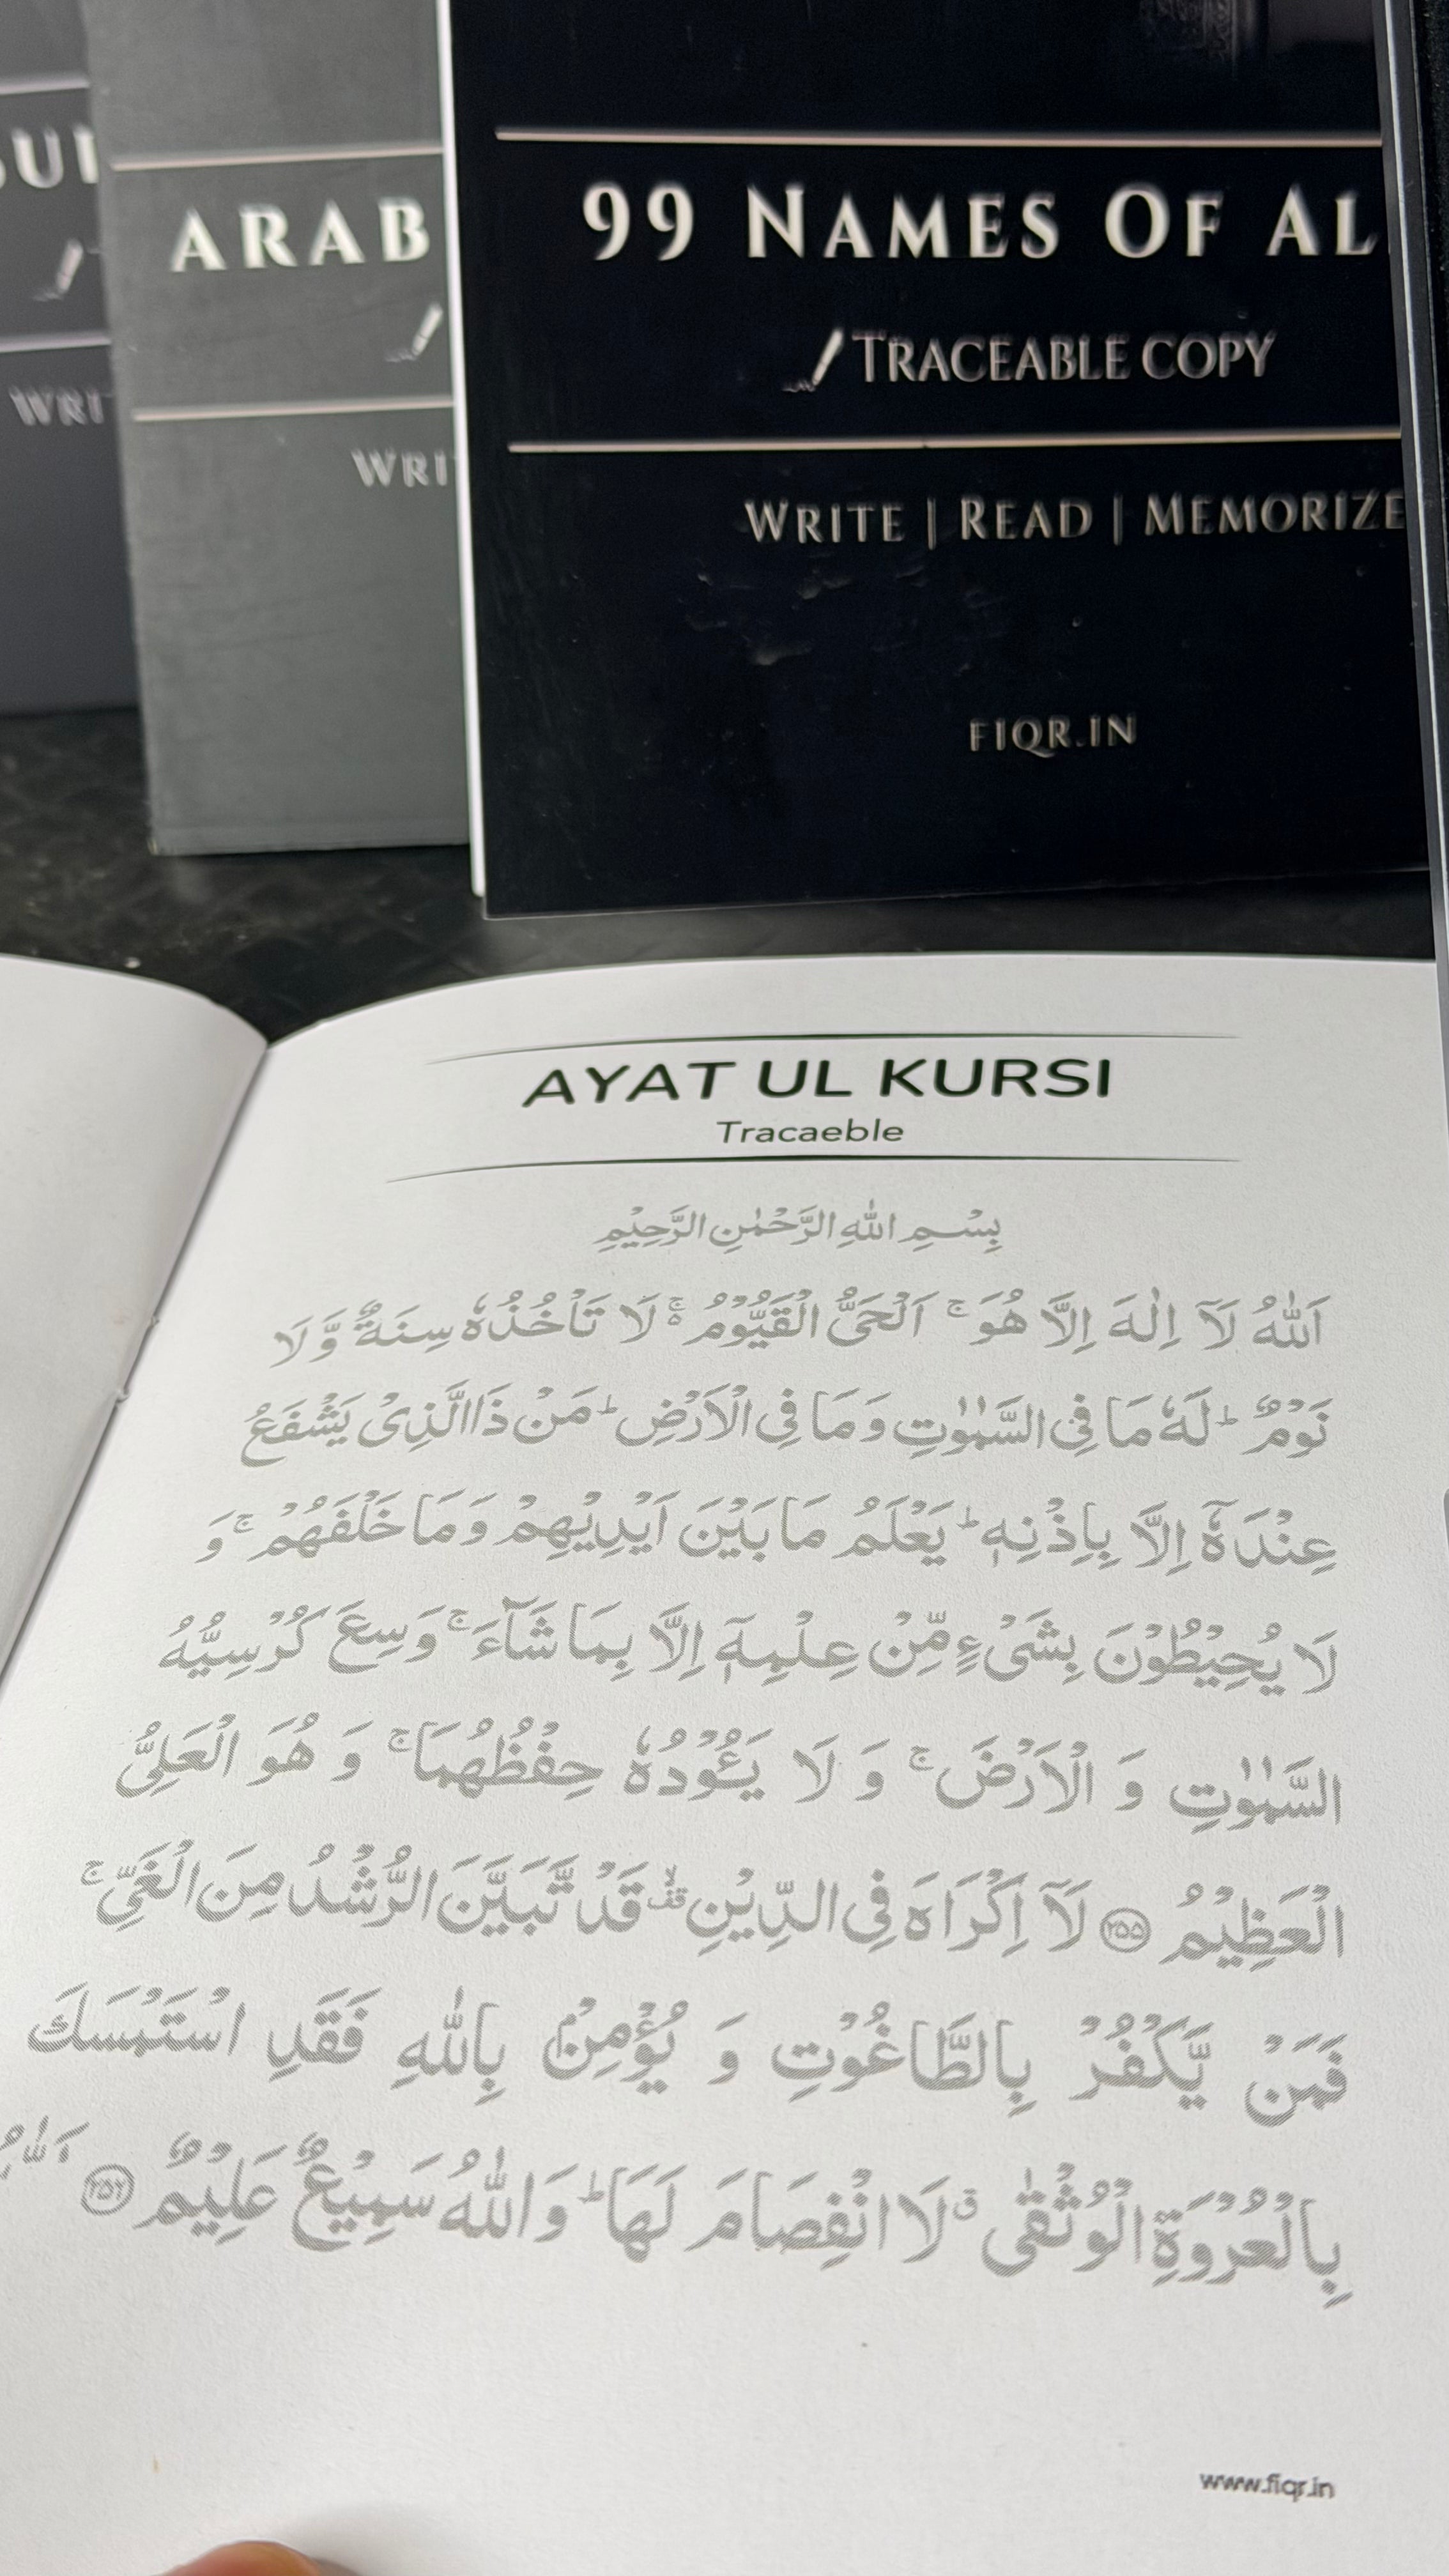 ARAB
WRI
99 NAMES OF AL
TRACEABLE COPY
WRITE | READ | MEMORIZE
FIQR.IN
AYAT UL KURSI
Tracaeble
بِسْمِ اللهِ الرَّحْمٰنِ الرَّحِيْمِ
اَللهُ لَآ اِلٰهَ اِلَّا هُوَ ۚ اَلْحَيُّ الْقَيُّوْمُ ۬ۚ لَا تَاْخُذُهٗ سِنَةٌ وَّ لَا
نَوْمٌ ؕ لَهٗ مَا فِی السَّمٰوٰتِ وَ مَا فِی الْاَرْضِ ؕ مَنْ ذَا الَّذِیْ یَشْفَعُ
عِنْدَهٗۤ اِلَّا بِاِذْنِهٖ ؕ یَعْلَمُ مَا بَیْنَ اَیْدِیْهِمْ وَ مَا خَلْفَهُمْ ۚ وَ
لَا یُحِیْطُوْنَ بِشَیْءٍ مِّنْ عِلْمِهٖۤ اِلَّا بِمَا شَآءَ ۚ وَسِعَ كُرْسِیُّهُ
السَّمٰوٰتِ وَ الْاَرْضَ ۚ وَ لَا یَـُٔوْدُهٗ حِفْظُهُمَا ۚ وَ هُوَ الْعَلِیُّ
الْعَظِیْمُ ﴿۲۵۵﴾ لَاۤ اِكْرَاهَ فِی الدِّیْنِ ۟ۙ قَدْ تَّبَیَّنَ الرُّشْدُ مِنَ الْغَیِّ ۚ
فَمَنْ یَّكْفُرْ بِالطَّاغُوْتِ وَ یُؤْمِنْۢ بِاللهِ فَقَدِ اسْتَمْسَكَ
بِالْعُرْوَةِ الْوُثْقٰی ۗ لَا انْفِصَامَ لَهَا ؕ وَ اللهُ سَمِیْعٌ عَلِیْمٌ ﴿۲۵۶﴾
www.fiqr.in